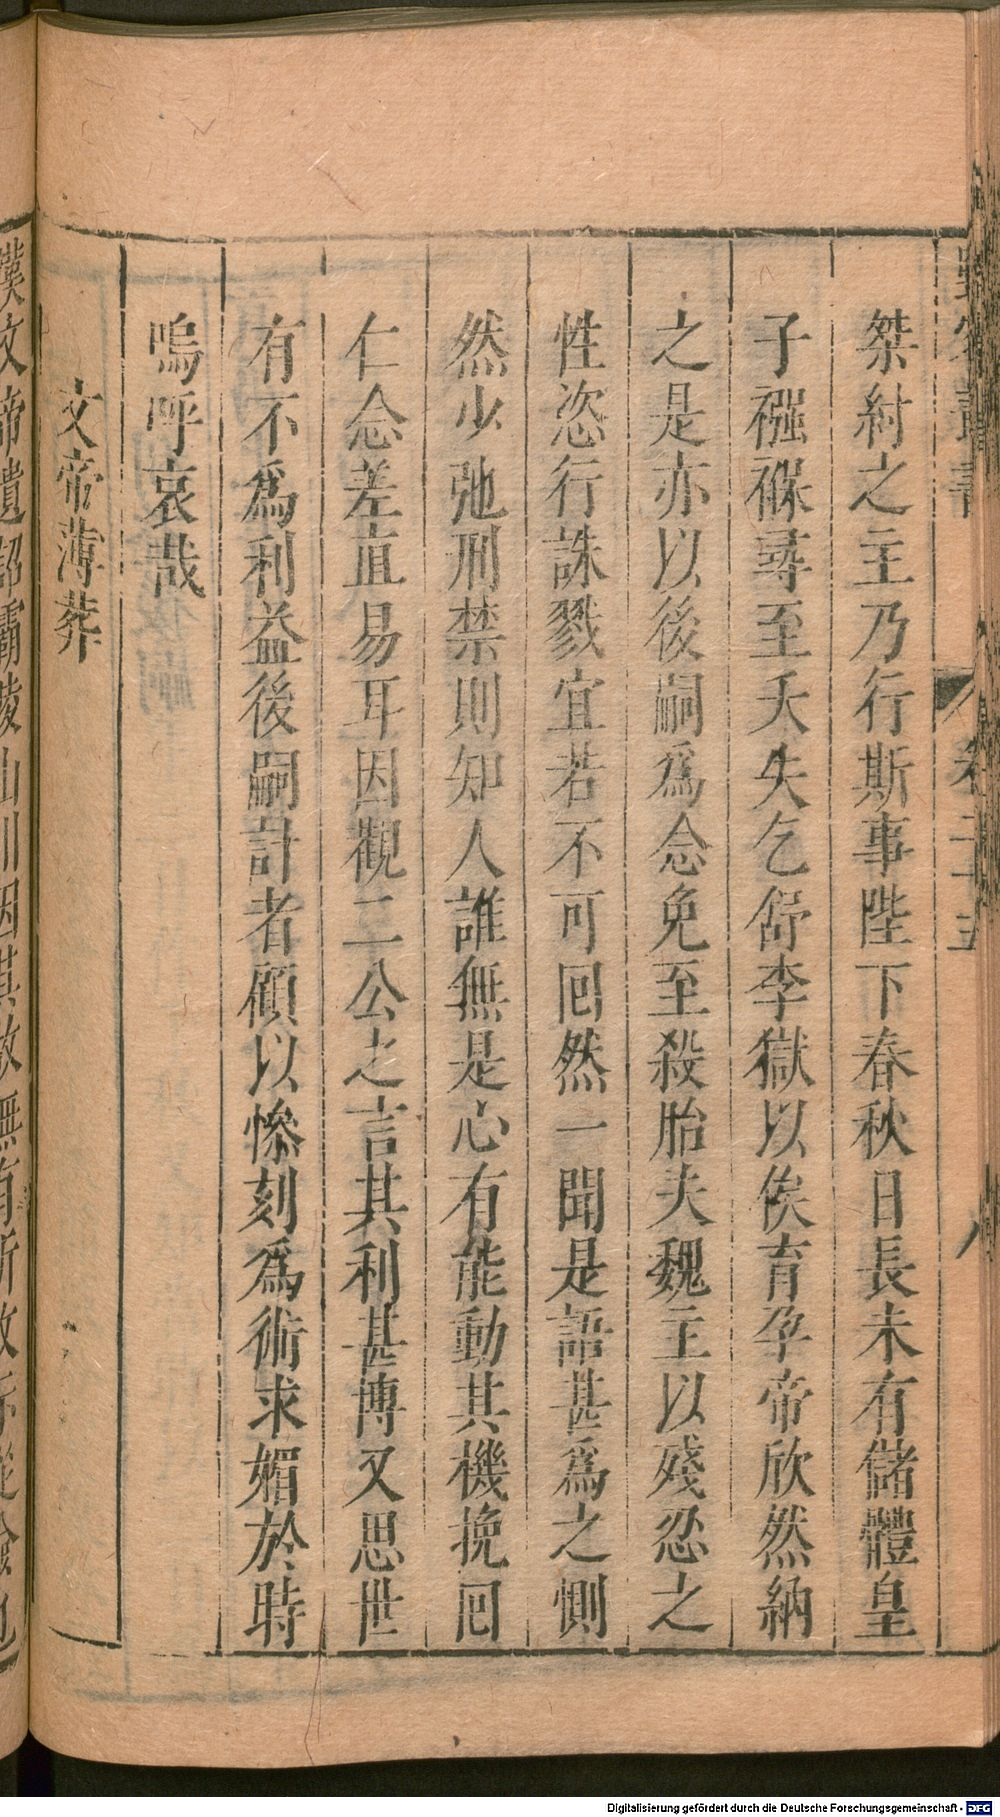 桀紂之主乃行斯事陛下春秋日長未有儲體皇
子襁褓尋至夭失乞舒李獄以俟育孕帝欣然納
之是亦以後嗣爲念免至殺胎夫魏主以殘忍之
性恣行誅戮宜若不可囘然一聞是語甚爲之惻
然少弛刑禁則知人誰無是心有能動其機挽囘
仁念差直易耳因觀二公之言其利甚博又思世
有不爲利益後嗣計者顧以慘刻爲術求媚於時
嗚呼哀哉
文帝薄葬
漢文帝遺詔霸陵山川因其故無有所改
卷二十五
Digitalisierung gefördert durch die Deutsche Forschungsgemeinschaft - DFG